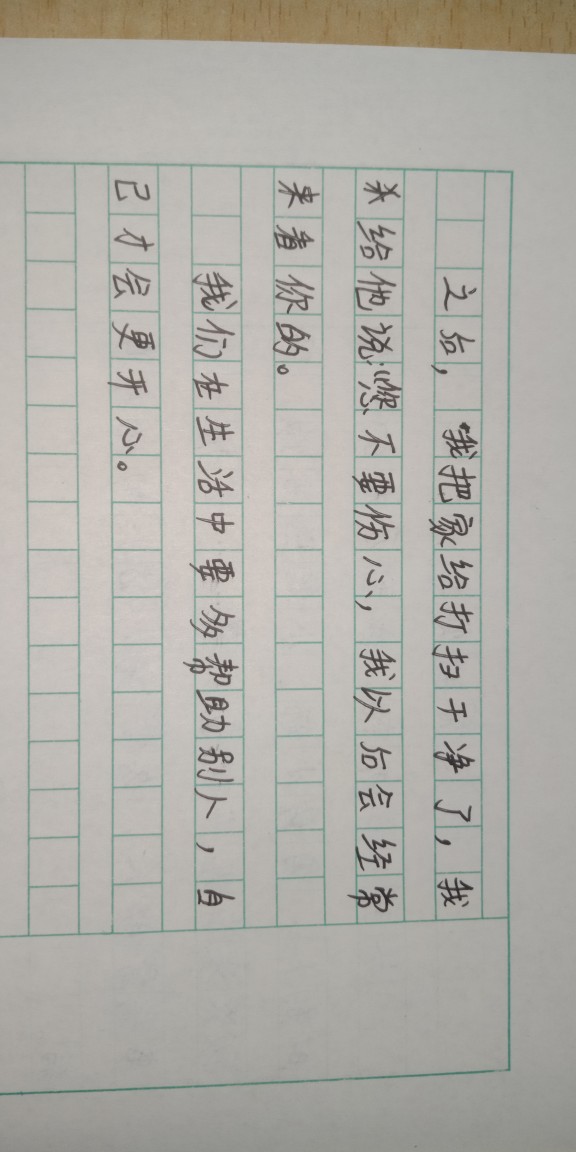 之后，我把家给打扫干净了，我
给他说：“您不要伤心，我以后会经常
来看你的。
我们在生活中要多帮助别人，自
己才会更开心。